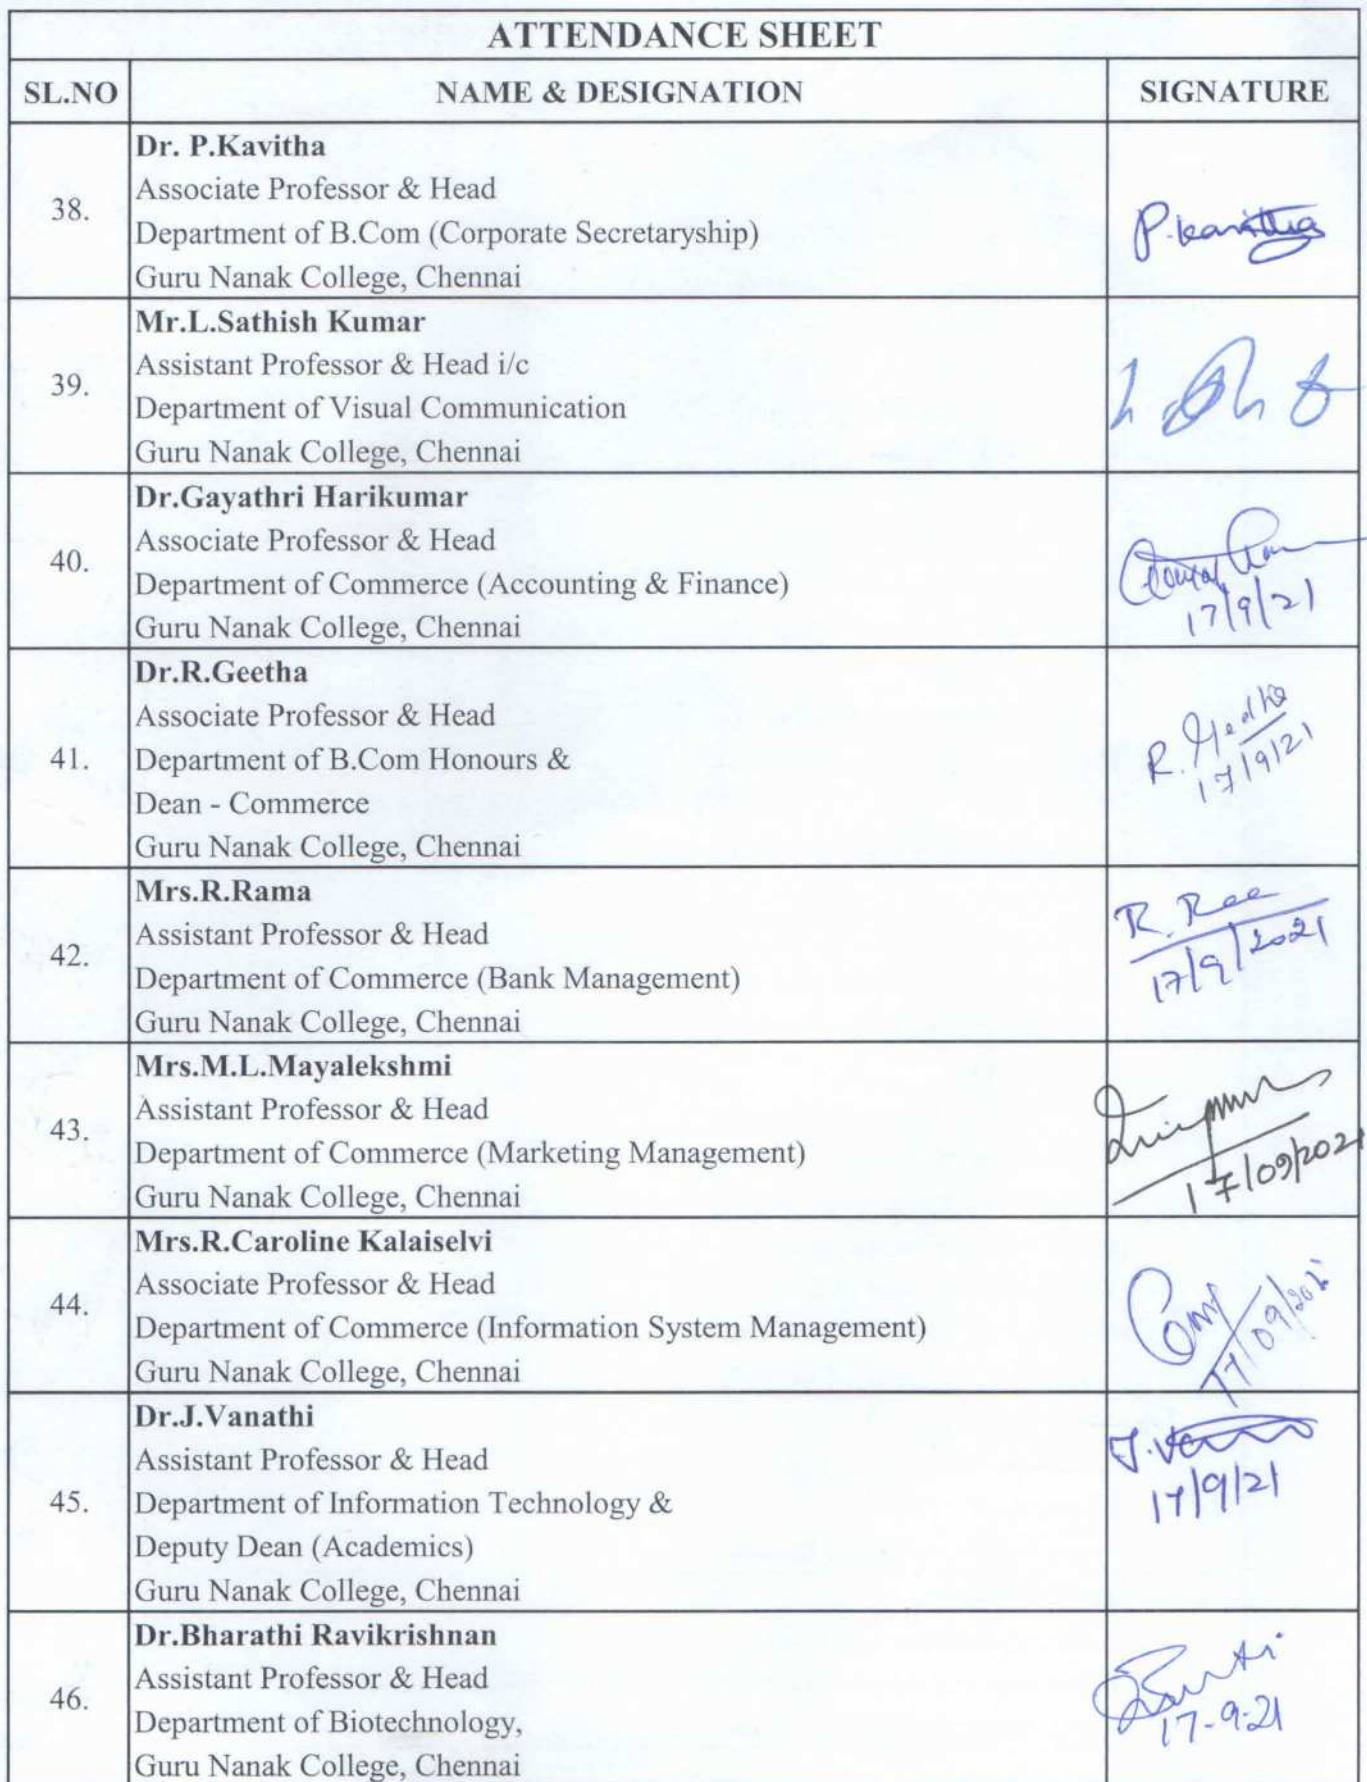 ATTENDANCE SHEET
SL.NO NAME & DESIGNATION SIGNATURE
Dr. P.Kavitha
Associate Professor & Head
38.
Department of B.Com (Corporate Secretaryship)
P.Kavitha
Guru Nanak College, Chennai
Mr.L.Sathish Kumar
Assistant Professor & Head i/c
39.
Department of Visual Communication
Guru Nanak College, Chennai
Dr.Gayathri Harikumar
Associate Professor & Head
40.
Department of Commerce (Accounting & Finance)
17/9/21
Guru Nanak College, Chennai
Dr.R.Geetha
Associate Professor & Head
R. Geetha
41.
Department of B.Com Honours &
17/9/21
Dean - Commerce
Guru Nanak College, Chennai
Mrs.R.Rama
Assistant Professor & Head
42.
Department of Commerce (Bank Management)
17/9/2021
Guru Nanak College, Chennai
Mrs.M.L.Mayalekshmi
Assistant Professor & Head
43.
Department of Commerce (Marketing Management)
17/09/2021
Guru Nanak College, Chennai
Mrs.R.Caroline Kalaiselvi
Associate Professor & Head
44.
Department of Commerce (Information System Management)
17/09/2021
Guru Nanak College, Chennai
Dr.J.Vanathi
Assistant Professor & Head
45.
Department of Information Technology &
17/9/21
Deputy Dean (Academics)
Guru Nanak College, Chennai
Dr.Bharathi Ravikrishnan
Assistant Professor & Head
46.
Department of Biotechnology,
17-9-21
Guru Nanak College, Chennai